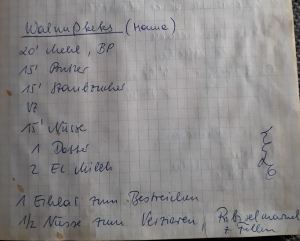 Walnußkeks (Mama)
20' Mehl, BP
15' Butter
15' Staubzucker
VZ
15' Nüsse
1 Dotter
2 El Milch
1 Eiklar zum Bestreichen
1/2 Nüsse zum Verzieren, Ribiselmarmel
z. Füllen